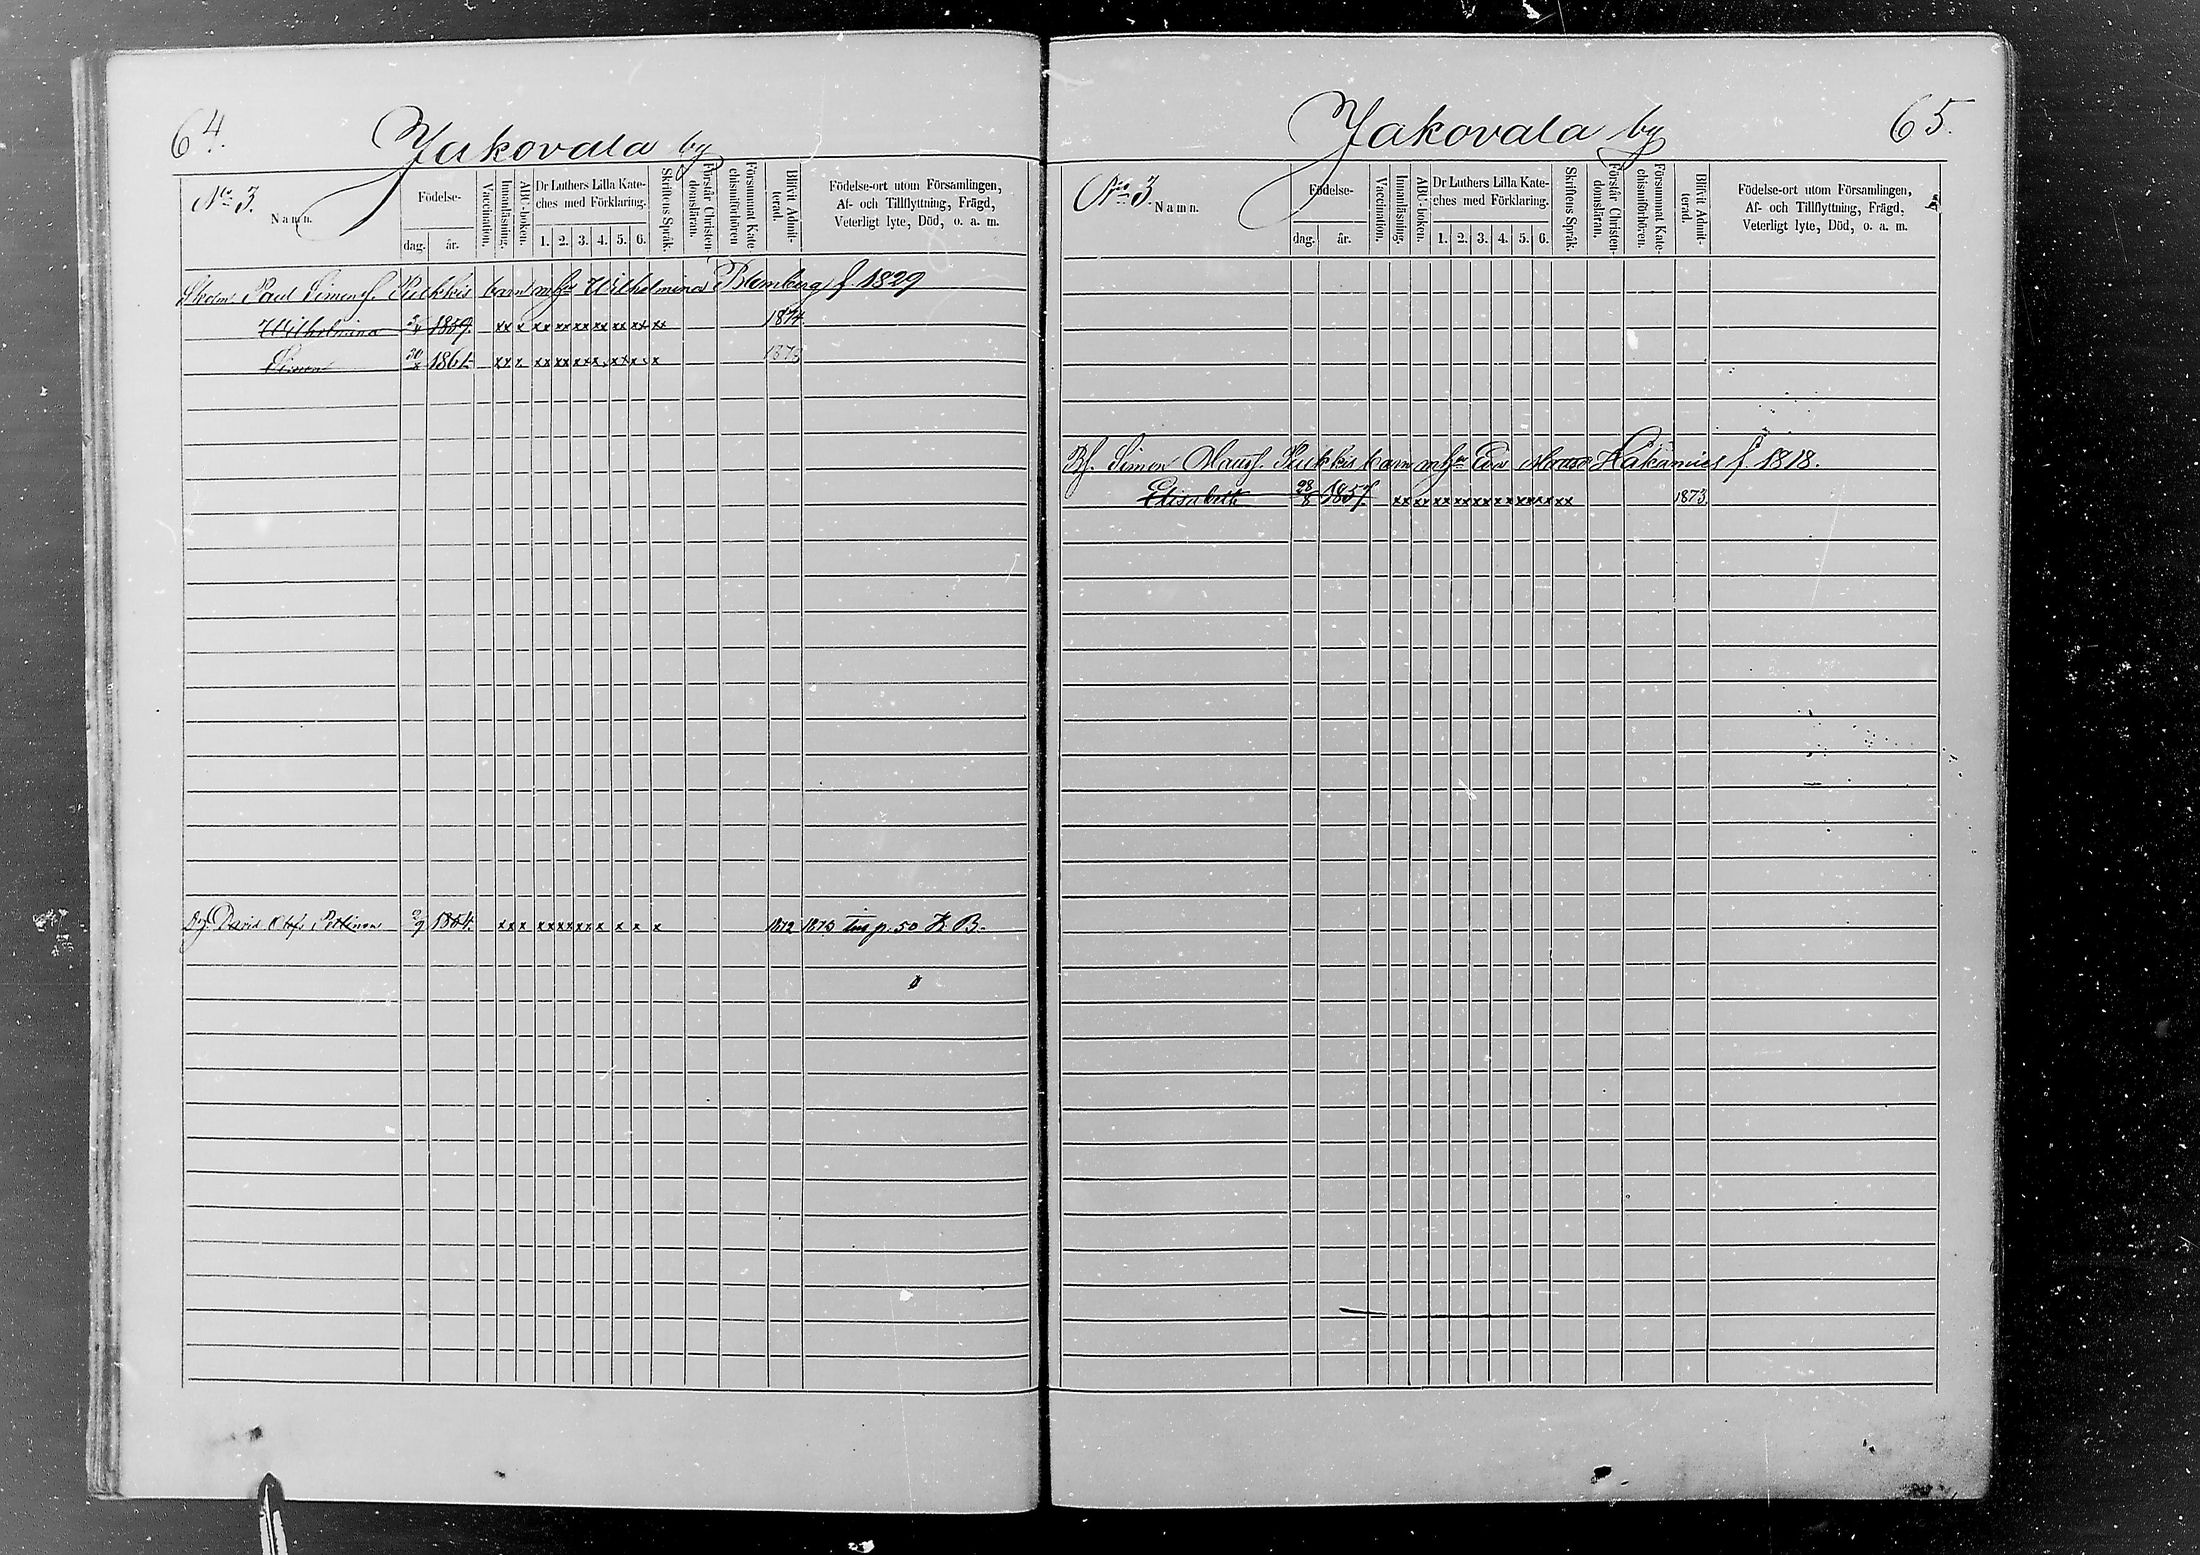 64.
Jakovala by
No 3.
Namn.
Födelse-
dag. år.
Vaccination.
Innanläsning.
ABC-boken.
Dr Luthers Lilla Kate-
ches med Förklaring.
1. 2. 3. 4. 5. 6.
Skriftens Språk.
Förstår Christen-
domsläran.
Försummat Kate
chismiförhören
Blifvit Admit-
terad.
Födelse-ort utom Församlingen,
Af- och Tillflyttning, Frägd,
Veterligt lyte, Död, o. a. m.
Paul Simonss. Pukkis barn m hu Wilhelmina Blomberg f. 1829
Wilhelmina 1859. xx x xx xx xx xx xx xx xx 1874
Simon 1861. 1873
David Olofs 2/9 1854. x x x xx xx xx x x x x 1872 1873 p. 50 K. B.
65.
Jakovala by
No 3.
Namn.
Födelse-
dag. år.
Vaccination.
Innanläsning.
ABC-boken.
Dr Luthers Lilla Kate-
ches med Förklaring.
1. 2. 3. 4. 5. 6.
Skriftens Språk.
Förstår Christen-
domsläran.
Försummat Kate-
chismiförhören.
Blifvit Admit-
terad.
Födelse-ort utom Församlingen,
Af- och Tillflyttning, Frägd,
Veterligt lyte, Död, o. a. m.
Simon Pukkis barn m hu Eva f. 1818.
Elisabeth 28/8 1857 xx xx xx xx xx xx xx xx xx 1873